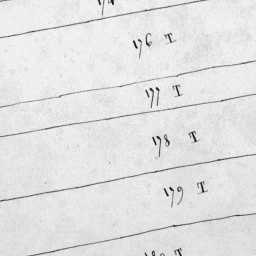 176 T
177 T
178 T
179 T